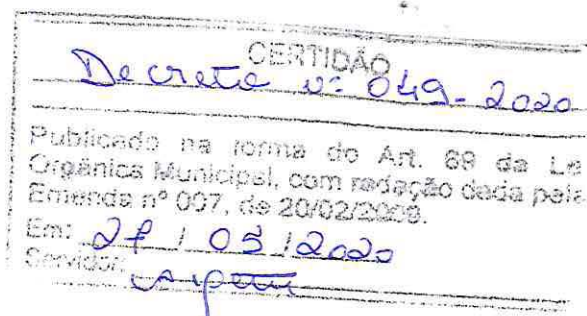 CERTIDÃO
Decreto nº 049-2020
Publicado na forma do Art. 69 da Le
Orgânica Municipal, com redação dada pela
Emenda nº 007, de 20/02/2009.
Em: 27 / 05 / 2020
Servidor: